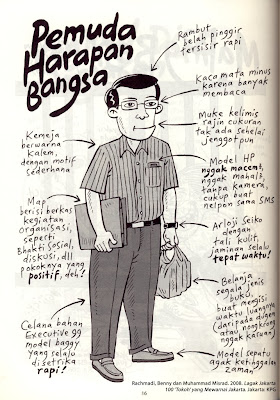 Pemuda
Harapan
Bangsa
Rambut
belah pinggir
tersisir rapi
Kaca mata minus
karena banyak
membaca
Muke kelimis
rajin cukuran
tak ada sehelai
jenggot pun
Kemeja
berwarna
kalem,
dengan motif
sederhana
Model HP
nggak macem²,
nggak mahal²,
tanpa kamera,
cukup buat
nelpon sama SMS
Map
berisi berkas
kegiatan
organisasi,
seperti
Bhakti Sosial,
diskusi, dll
pokoknya yang
positif, deh!
Arloji Seiko
dengan
tali kulit,
jaminan selalu
tepat waktu!
Belanja
segala jenis
buku,
buat mengisi
waktu luangnya
(daripada dugem
atau nongkrong
nggak karuan)
Celana bahan
Executive 99
model baggy
yang selalu
disetrika
rapi!
Model sepatu
agak ketinggalan
zaman
Rachmadi, Benny dan Muhammad Misrad. 2008. Lagak Jakarta
16
100 'Tokoh' yang Mewarnai Jakarta. Jakarta: KPG